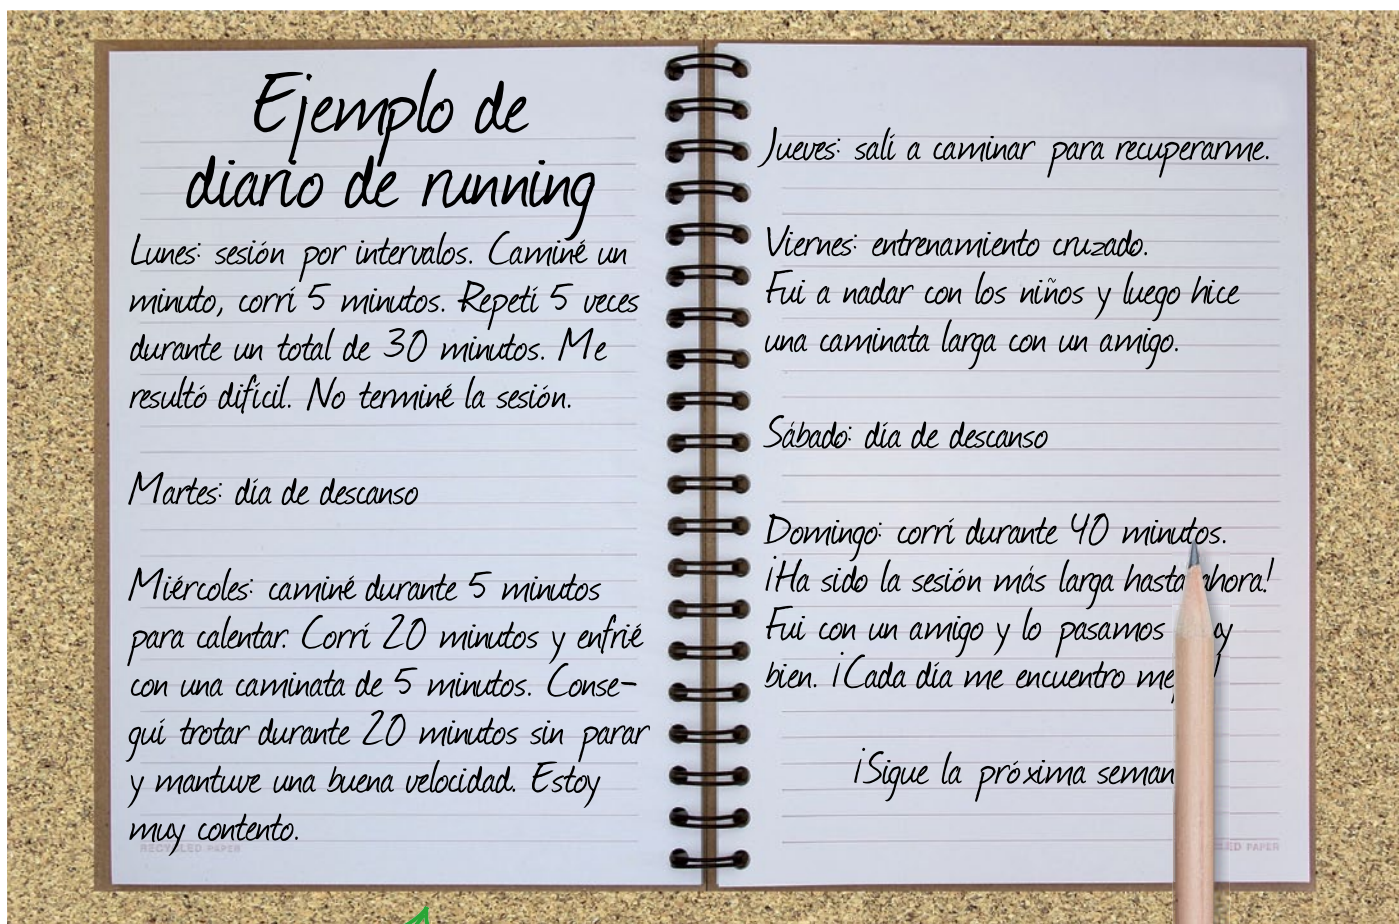 Ejemplo de
diario de running
Lunes: sesión por intervalos. Caminé un
minuto, corrí 5 minutos. Repetí 5 veces
durante un total de 30 minutos. Me
resultó difícil. No terminé la sesión.
Martes: día de descanso
Miércoles: caminé durante 5 minutos
para calentar. Corrí 20 minutos y enfrié
con una caminata de 5 minutos. Conse-
guí trotar durante 20 minutos sin parar
y mantuve una buena velocidad. Estoy
muy contento.
RECYCLED PAPER
Jueves: salí a caminar para recuperarme.
Viernes: entrenamiento cruzado.
Fui a nadar con los niños y luego hice
una caminata larga con un amigo.
Sábado: día de descanso
Domingo: corrí durante 40 minutos.
¡Ha sido la sesión más larga hasta ahora!
Fui con un amigo y lo pasamos
bien. ¡Cada día me encuentro
¡Sigue la próxima
PAPER